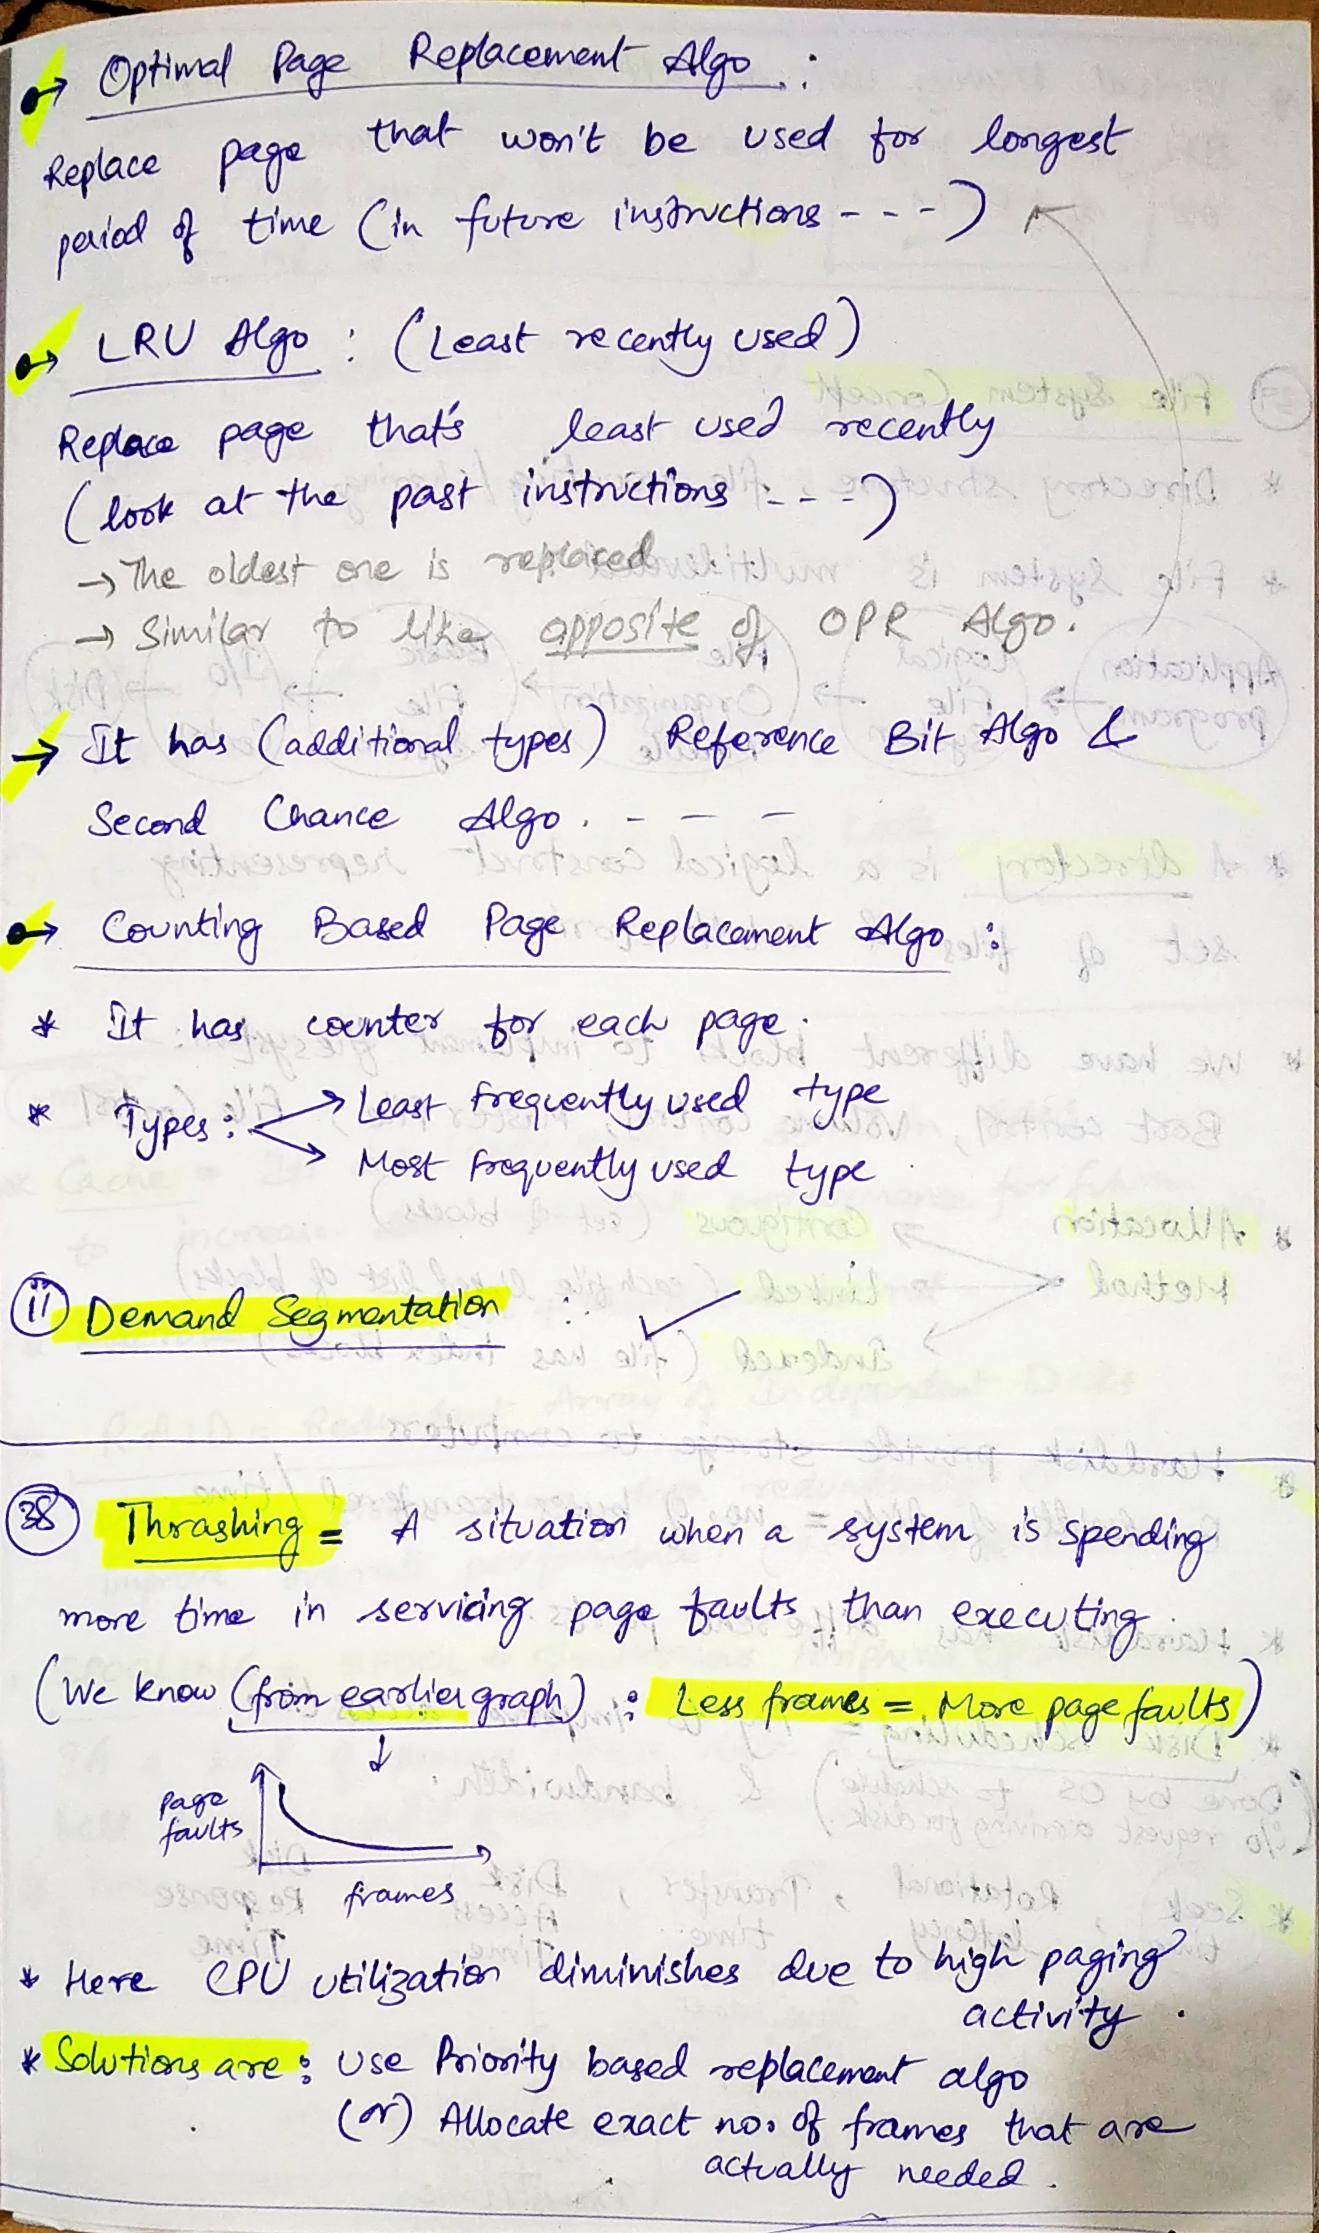 → Optimal Page Replacement Algo :
Replace page that won't be used for longest
period of time (in future instructions - - -)
→ LRU Algo : (Least recently used)
Replace page that's least used recently
(look at the past instructions - - -)
→ The oldest one is replaced
→ Similar to like opposite of OPR Algo.
→ It has (additional types) Reference Bit Algo &
Second Chance Algo. - - -
→ Counting Based Page Replacement Algo :
* It has counter for each page.
* Types : → Least frequently used type
→ Most frequently used type
(ii) Demand Segmentation : ✓
(38) Thrashing = A situation when a system is spending
more time in servicing page faults than executing.
(We know (from earlier graph) : Less frames = More page faults)
page
faults
frames
* Here CPU utilization diminishes due to high paging
activity.
* Solutions are : Use Priority based replacement algo
(or) Allocate exact no. of frames that are
actually needed.